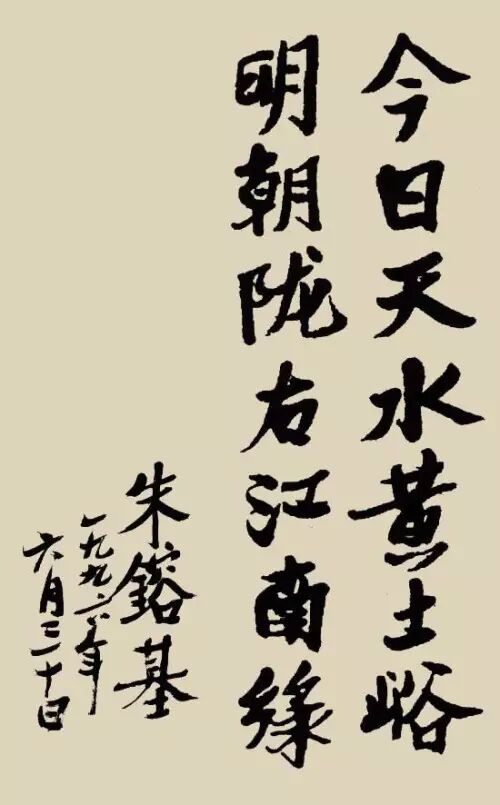 今日天水黄土峪
明朝陇右江南緑
朱鎔基
一九九六年
六月三十日